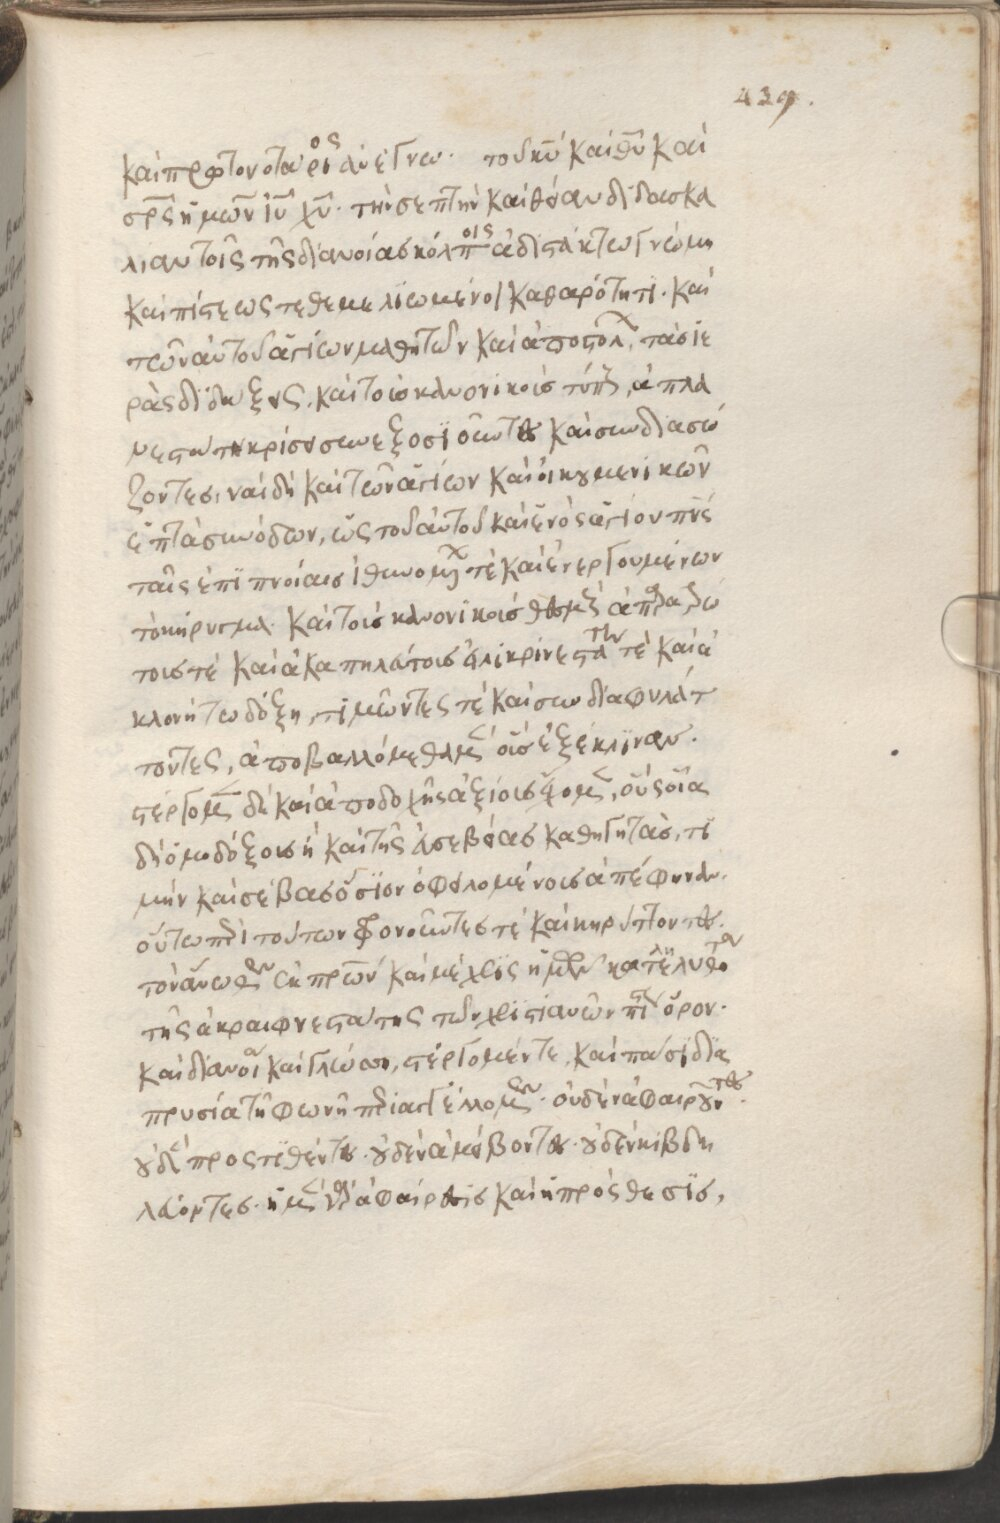 439.
καὶ πρωτονοτάριος ἀνέγνω. τοῦ κυ̅ καὶ θυ̅ καὶ
σρ̅ς ἡμῶν ἰυ̅ χυ̅. τὴν σεπτὴν καὶ θείαν διδασκα
λίαν τοῖς τῆς διανοίας κόλποις ἀδιστάκτω γνώμη
καὶ πίστεως τεθεμελϊωμένοι καθαρότητι. καὶ
τῶν αὐτοῦ ἁγίων μαθητῶν καὶ ἀποστολ, τὰσ ἱε
ρὰς διδαξεις. καὶ τοῖσ κανονικοῖσ τύποις, ἀπλα
νεστάτη κρίσει συνεξοσϊοῦντες καὶ συνδιασώ
ζοντεσ. ναὶ δὴ καὶ τῶν ἁγίων καὶ οἰκουμενικῶν
ἑπτὰ συνόδων, ὡς τοῦ αὐτοῦ καὶ ἑνὸς ἁγίου πνς
ταῖς ἐπϊπνοίαισ ἰθυνομένων τὲ καὶ ἐνεργουμένων
τὸ κήρυγμα. καὶ τοῖσ κανονικοῖσ θεσμοῖς ἀπαραγρώ
τοισ τὲ καὶ ἀκαπηλεύτοισ εἰλικρινεστάτην τὲ καὶ ἀ
κλονήτω δόξη, τιμῶντες τὲ καὶ συνδιαφυλάτ
τοντες, ἀποβαλλόμεθα μὲν οὓσ ἐξέκλϊναν.
στέργομεν δὲ καὶ ἀποδοχῆς ἀξίουσ ἔχομεν, οὓς οἷα
δὴ ὁμοδόξουσ ἢ καὶ τῆς εὐσεβείασ καθηγητὰσ, τι
μὴν καὶ σέβασ ὅσϊον ὀφειλομένουσ ἀπέφηναν.
οὕτω περὶ τούτων φρονοῦντεσ τὲ καὶ κηρύττοντες.
τὸν ἄνωθεν ἐκ πρων καὶ μέχρις ἡμῶν κατεληλυθότα
τῆς ἀκραιφνεστάτης τῶν χριστιανῶν πίστεως ὅρον.
καὶ διανοία καὶ γλώσση, στέργομέν τε, καὶ πᾶσϊ δϊα
πρυσίω τῆ φωνῆ περιαγγέλλομεν. οὐδὲν ἀφαιροῦντες.
οὐδὲν προςτϊθέντες. οὐδὲν ἀμείβοντες. οὐδὲν κιβδη
λεύοντεσ. ἡ μὲν γὰρ ἀφαίρεσις καὶ ἡ πρόςθεσϊς,